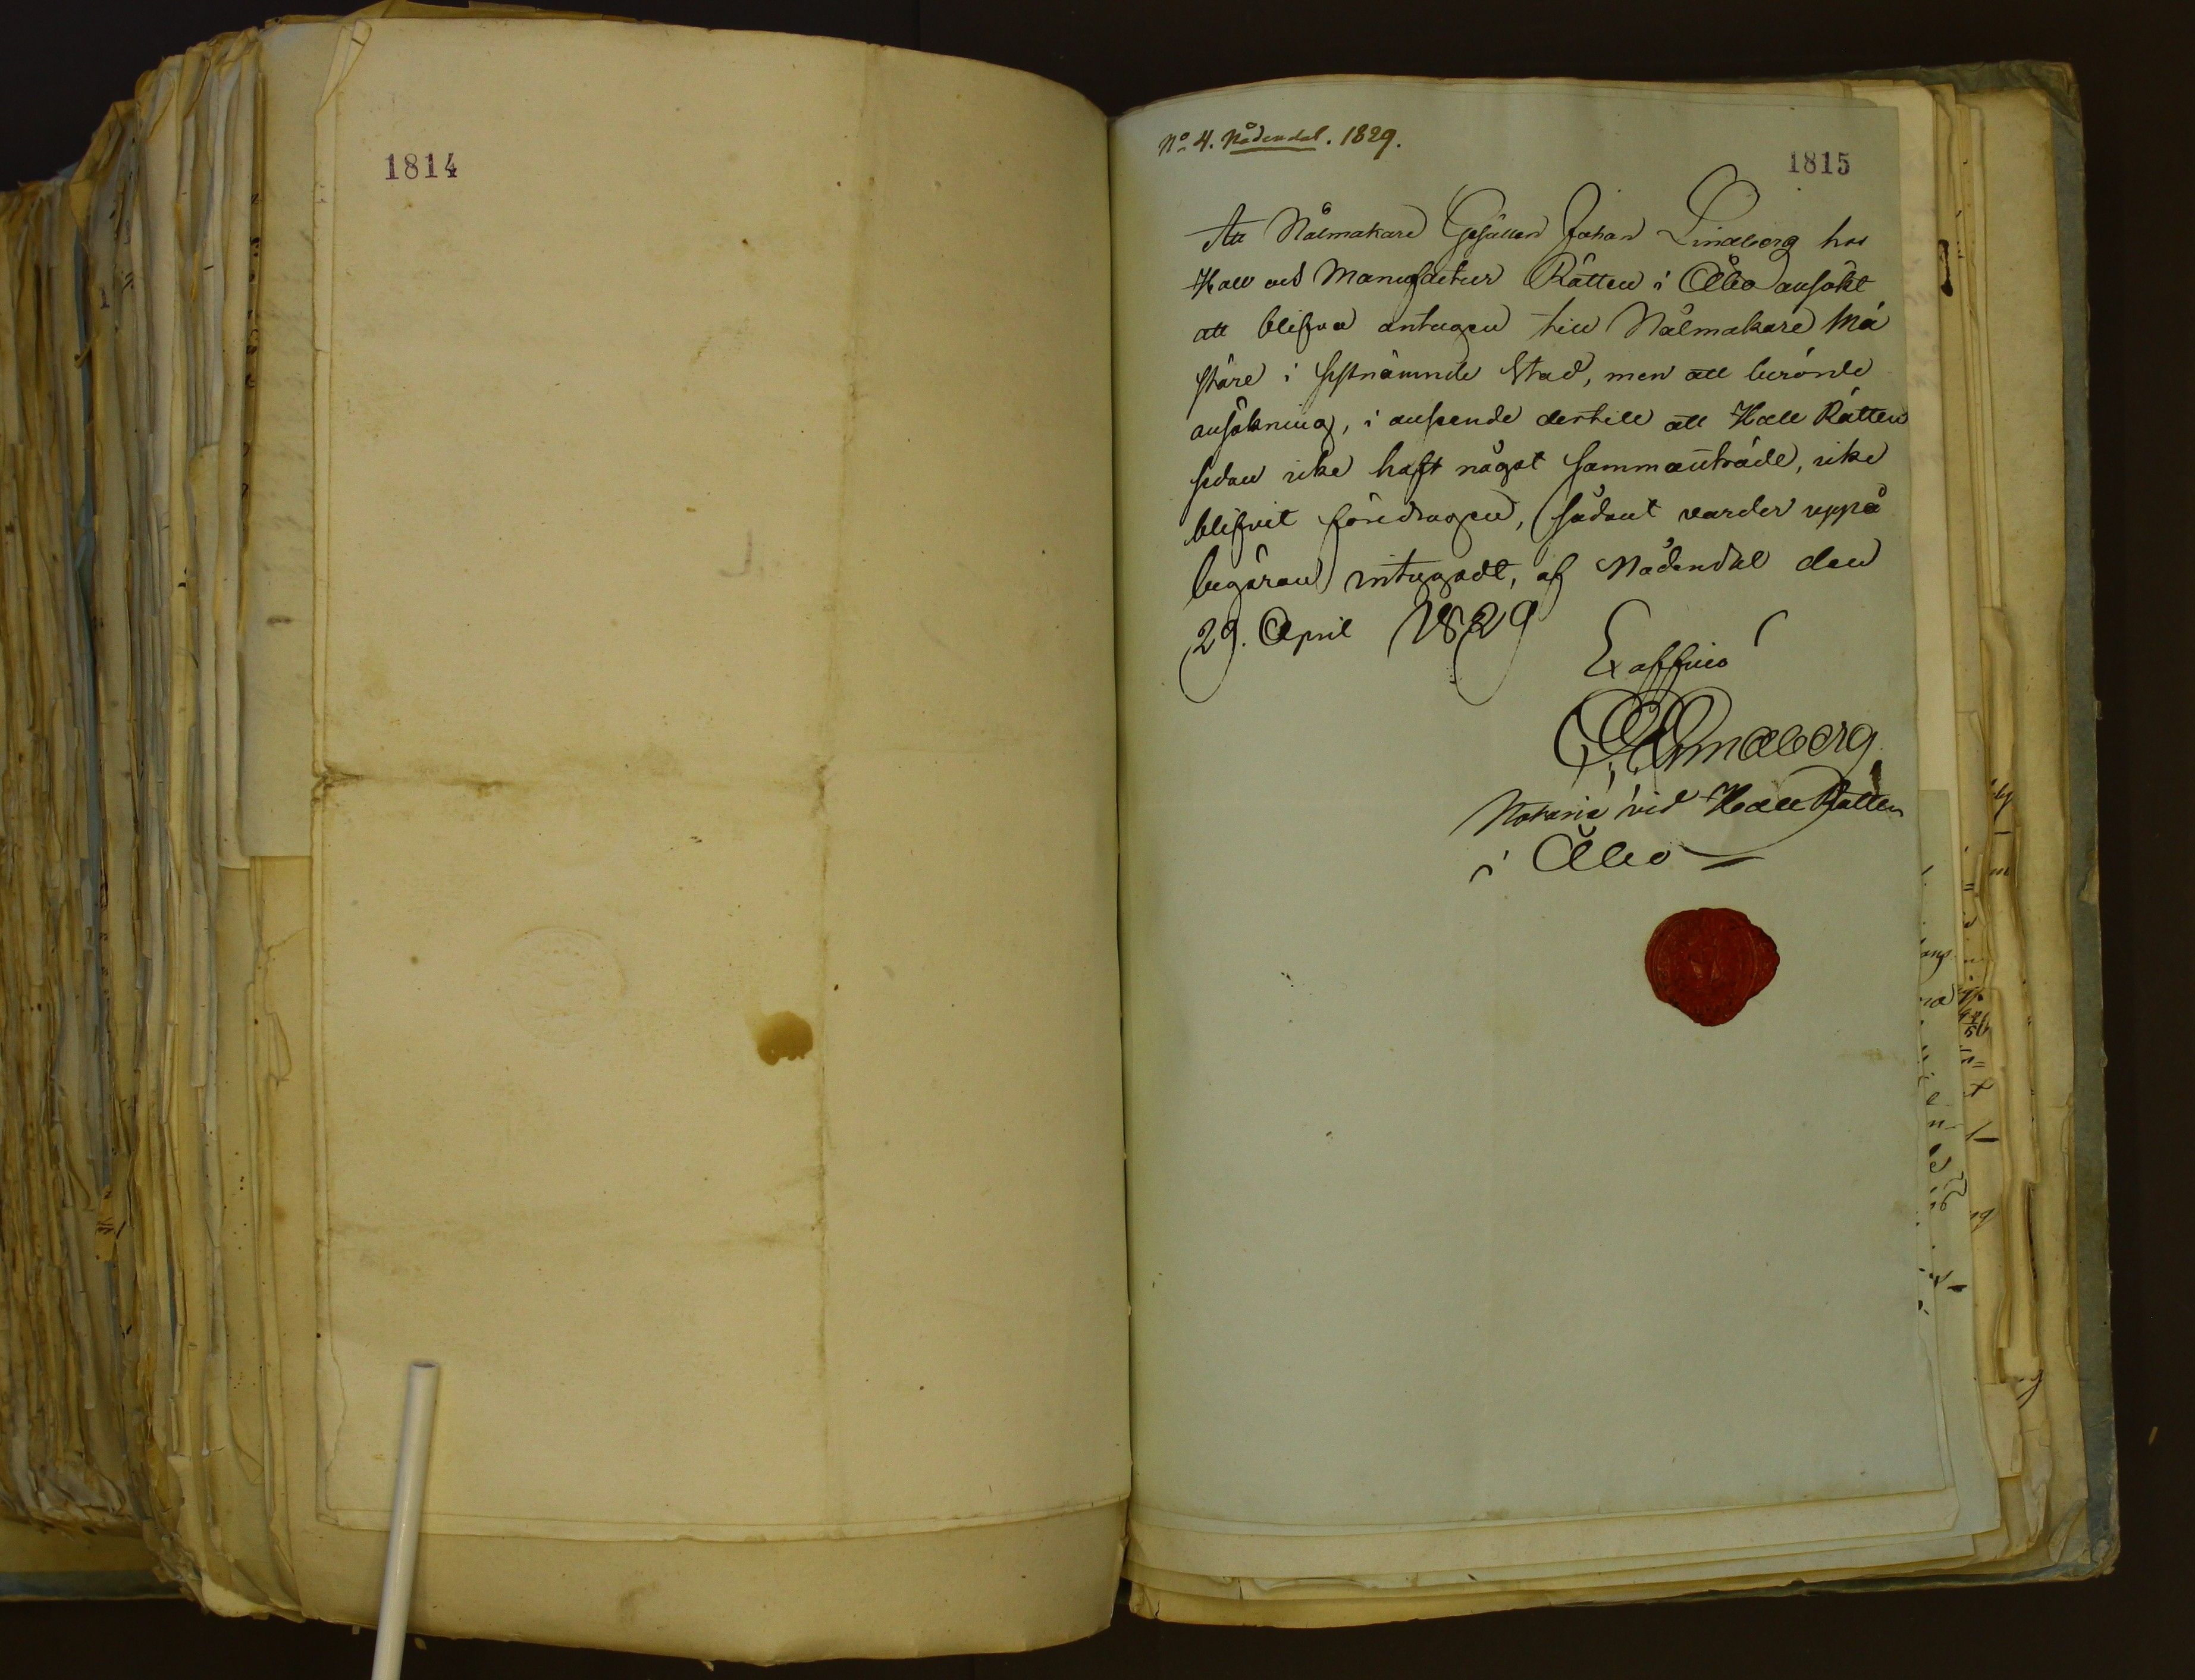 1814
No 4. Nådendal. 1829.
1815
Att Nålmakare Gesällen Johan Lindborg hos
Hall och Manufactur Rätten i Åbo ansökt
att blifva antagen till Nålmakare Mä
stare i sistnämnde Stad, men att berörde
ansökning, i anseende dertill att Hall Rätten
sedan icke haft något sammanträde, icke
blifvit föredragen, sådant varder uppå
begäran intygadt, af Nådendal den
29. April 1829
Ex officio
Notarie vid Hall Rätten
i Åbo